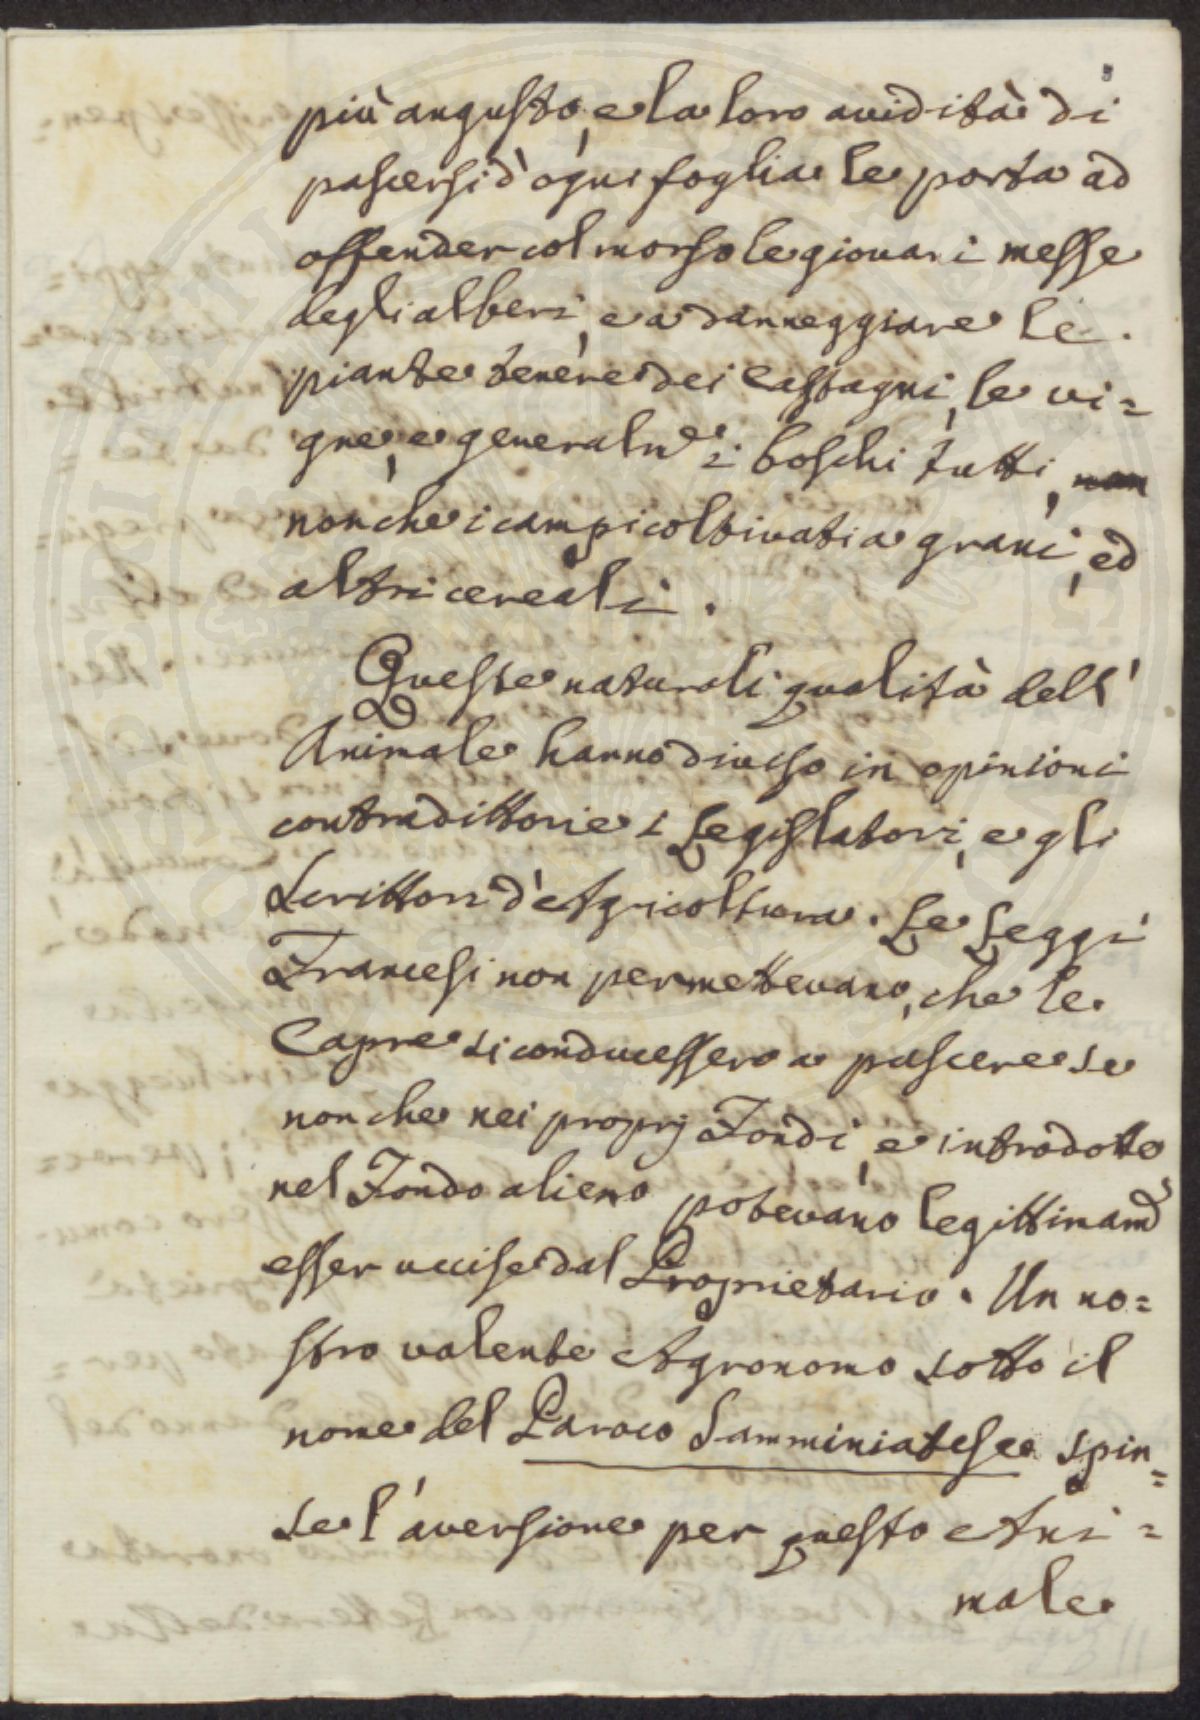 più angusto, e la loro avidità di
pascersi d'ogni foglia le porta ad
offender col morso le giovani messe
degli alberi, e a danneggiare le
piante tenere dei Castagni, le vi=
gne, e generalm.e i boschi tutti,
nonche i campi coltivati a grani, ed
altri cereali.
Queste naturali qualità dell'
Animale hanno diviso in opinioni
contradittorie i Legislatori, e gli
Scrittori d'Agricoltura. Le Leggi
Francesi non permettevano, che le
Capre si conducessero a pascere se
non che nei proprj Fondi, e introdotte
nel Fondo alieno potevano legittimam.e
esser uccise dal Proprietario. Un no=
stro valente Agronomo sotto il
nome del Paroco Samminiatese spin=
se l'aversione per questo Ani=
male